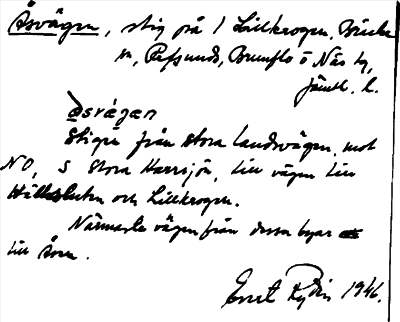 Åsvägen, stig på 1 Lillkrogen, Bräcke
sn, Refsunds, Brunflo o Näs tg,
Jämtl. l.
åsvägen
Stigen från stora landsvägen mot
NO, S Stora Harrsjön, till vägen till
Hällesluten och Lillkrogen.
Närmaste vägen från dessa byar
till Åsen.
Ernst Rydin 1946.